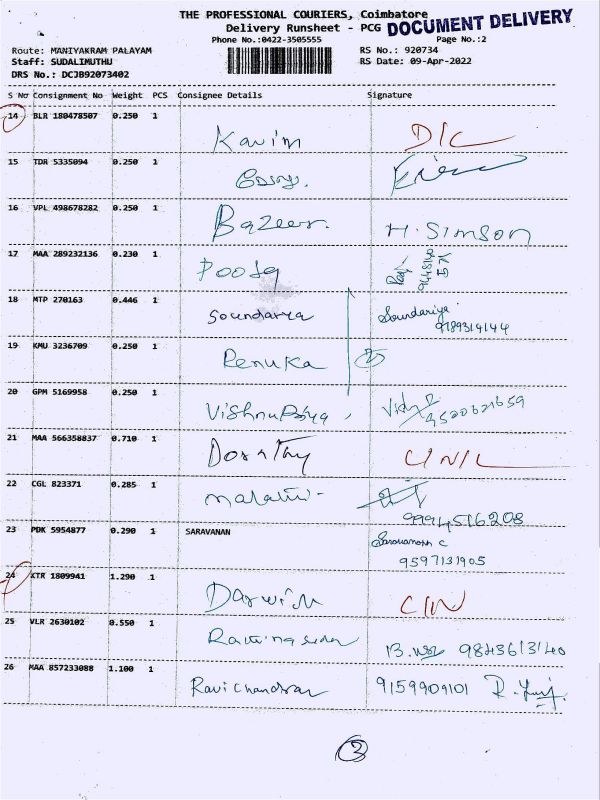 THE PROFESSIONAL COURIERS, Coimbatore
Delivery Runsheet - PCG DOCUMENT DELIVERY
Phone No.:0422-3505555 Page No.:2
Route: MANIYAKRAM PALAYAM RS No.: 920734
Staff: SUDALIMUTHU RS Date: 09-Apr-2022
DRS No.: DCJB92073402
S No Consignment No Weight PCS Consignee Details Signature
14 BLR 180478507 0.250 1 Kavim D/C
15 TDR 5335094 0.250 1
16 VPL 498678282 0.250 1 Bazeer. H. Simson
17 MAA 289232136 0.230 1 Pooja
18 MTP 270163 0.446 1 Soundarya Soundariya
9189314144
19 KMU 3236709 0.250 1 Renuka 2
20 GPM 5169958 0.250 1 VishnuPriya 9520621659
21 MAA 566358837 0.710 1 Dorathy C/N/L
22 CGL 823371 0.285 1 malathi
9994516208
23 PDK 5954877 0.290 1 SARAVANAN Saravanan C
9597131905
24 KTR 1809941 1.290 1 Darwin C/N
25 VLR 2630102 0.550 1 9843613140
26 MAA 857233088 1.100 1 Ravichandran 9159909101
3